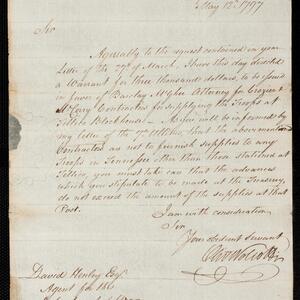 May 12th 1797
Sir
Agreeably to the request contained in your
Letter of the 27th of March, I have this day directed
a Warrant for three thousand dollars, to be issued
in favor of Barclay McGhee Attorney for Crozier
McCorry Contractors for supplying the Troops at
Tellico Blockhouse — As you will be informed by
my letter of the 7th that the abovementioned
Contractors are not to furnish supplies to any
Troops in Tennessee other than those stationed at
Tellico, you must take care that the advances
which you stipulate to be made at the Treasury,
do not exceed the amount of the supplies at that
Post.
I am with consideration
Sir
Your obedient servant
Oliv Wolcott
David Henley Esqr
Agent for the